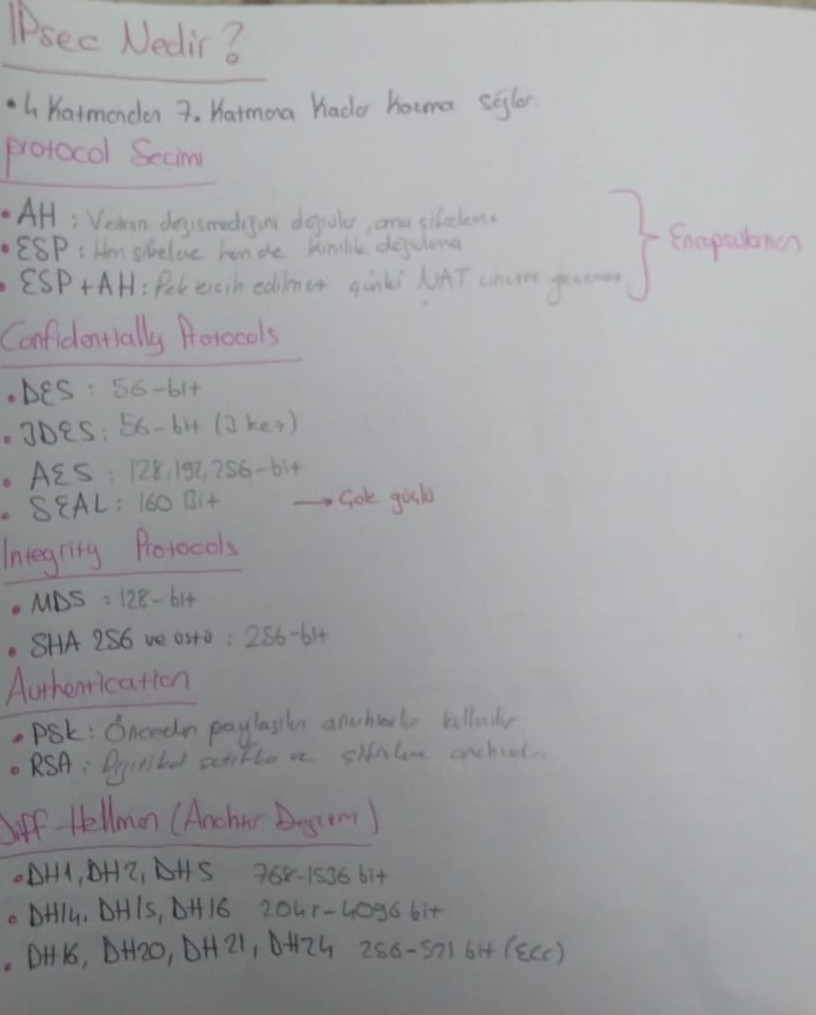 IPsec Nedir?
• 4 Katmandan 7. Katmana Kadar Koruma sağlar.
protocol Secimi
• AH : Verinin degismedigini dogrular, ama sifrelenme
• ESP : Hem sifreleme hem de kimlik dogrulama
• ESP + AH : Pek tercih edilmez çünki NAT geçemez
Encapsulation
Confidentially Protocols
• DES : 56-bit
• 3DES : 56-bit (3 key)
• AES : 128,192,256-bit
• SEAL : 160 Bit → Çok güçlü
Integrity Protocols
• MD5 : 128-bit
• SHA 256 ve üstü : 256-bit
Authentication
• PSK : Önceden paylasilan anahtarlar kullanilir
• RSA : sertifika ve sifreleme
Diff-Hellman (Anahtar Degisim)
• DH1, DH2, DH5 768-1536 bit
• DH14, DH15, DH16 2048-4096 bit
• DH16, DH20, DH21, DH24 256-521 bit (ECC)